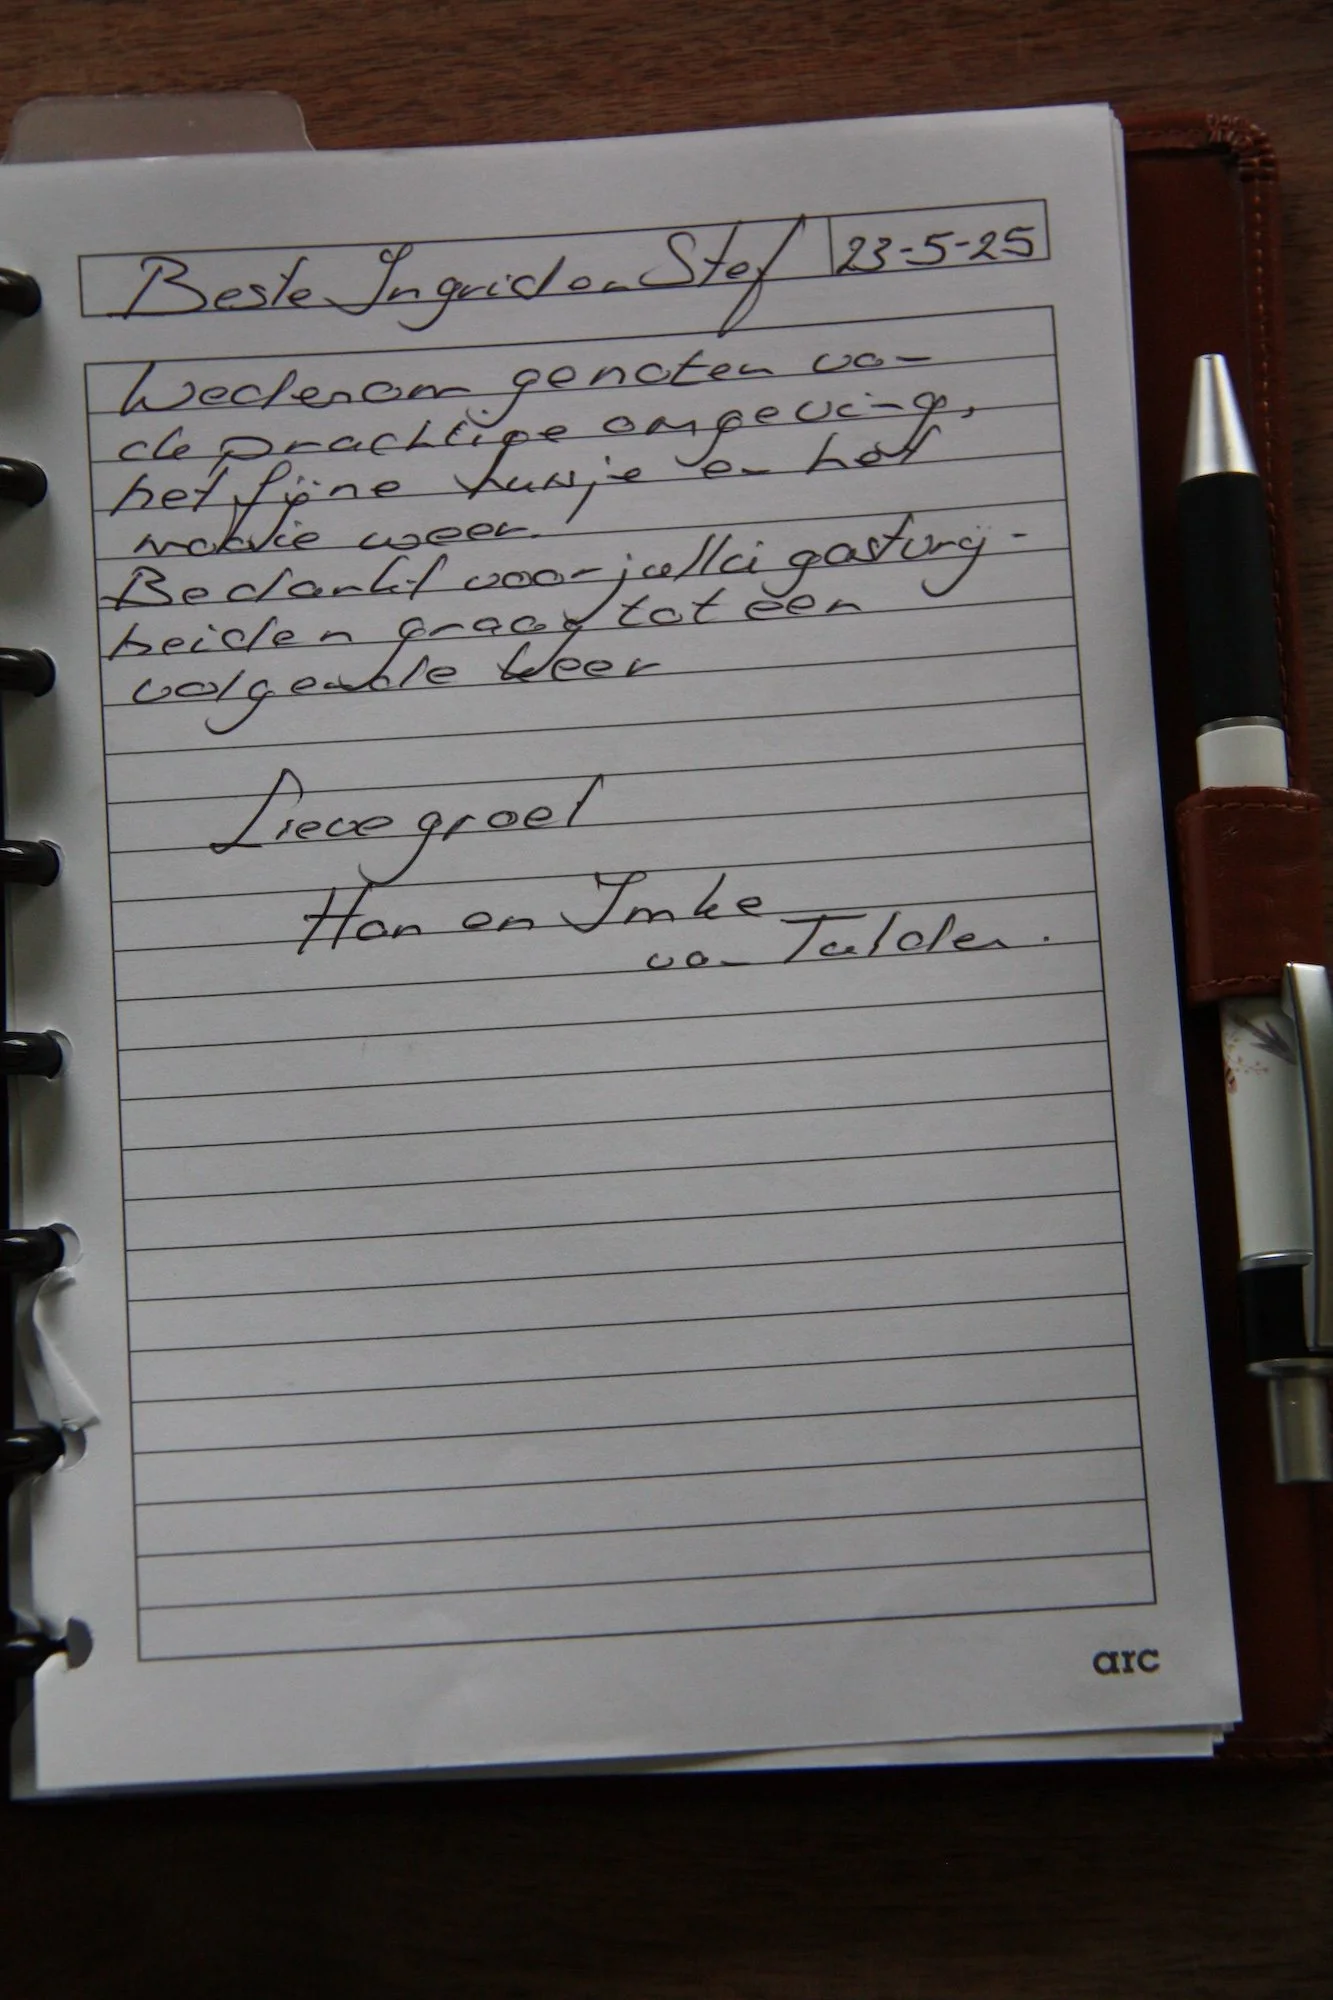 Beste Ingrid en Stef
23-5-25
Wederom genoten van
de prachtige omgeving,
het fijne huisje en het
mooie weer.
Bedankt voor jullie gastvrij-
heiden graag tot een
volgende keer
Lieve groet
Han en Imke
van Tulden.
arc